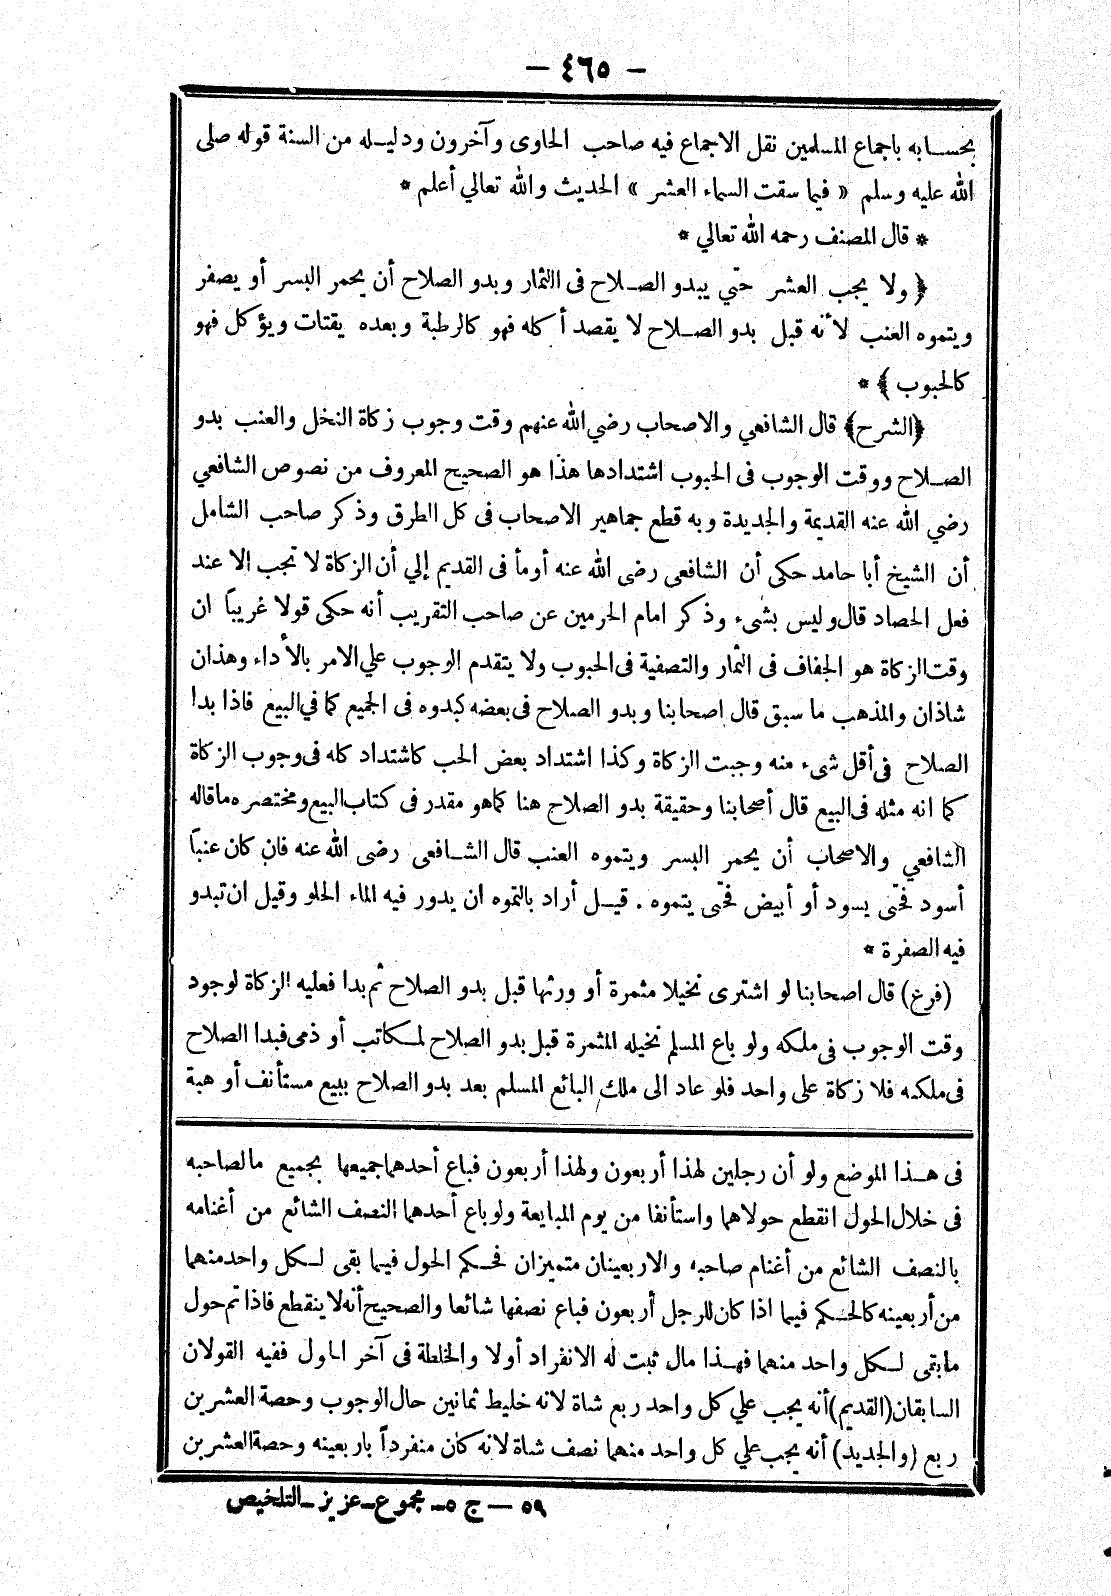 — ٤٦٥ —
بحسـابه باجماع المسلمين نقل الاجماع فيه صاحب الحاوى وآخرون ودليـله من السنة قوله صلى
الله عليه وسلم « فيما سقت السماء العشر » الحديث والله تعالي أعلم *
* قال المصنف رحمه الله تعالي *
﴿ ولا يجب العشر حتي يبدو الصـلاح فى الثمار وبدو الصلاح أن يحمر البسر أو يصفر
ويتموه العنب لأنه قبل بدو الصـلاح لا يقصد أكله فهو كالرطبة وبعده يقتات ويؤكل فهو
كالحبوب ﴾ *
﴿الشرح﴾ قال الشافعي والاصحاب رضي الله عنهم وقت وجوب زكاة النخل والعنب بدو
الصـلاح ووقت الوجوب فى الحبوب اشتدادها هذا هو الصحيح المعروف من نصوص الشافعي
رضي الله عنه القديمة والجديدة وبه قطع جماهير الاصحاب فى كل الطرق وذكر صاحب الشامل
أن الشيخ أبا حامد حكى أن الشافعى رضى الله عنه أومأ فى القديم إلي أن الزكاة لا تجب الا عند
فعل الحصاد قال وليس بشىء وذكر امام الحرمين عن صاحب التقريب أنه حكى قولا غريباً ان
وقت الزكاة هو الجفاف فى الثمار والتصفية فى الحبوب ولا يتقدم الوجوب علي الامر بالأداء وهذان
شاذان والمذهب ما سبق قال اصحابنا وبدو الصلاح فى بعضه كبدوه فى الجميع كما في البيع فاذا بدا
الصلاح فى أقل شىء منه وجبت الزكاة وكذا اشتداد بعض الحب كاشتداد كله فى وجوب الزكاة
كما انه مثله فى البيع قال أصحابنا وحقيقة بدو الصلاح هنا كما هو مقدر فى كتاب البيع ومختصره ما قاله
الشافعي والاصحاب أن يحمر البسر ويتموه العنب قال الشـافعى رضى الله عنه فان كان عنباً
أسود فحتى يسود أو أبيض فحتى يتموه . قيـل أراد بالتموه ان يدور فيه الماء الحلو وقيل ان تبدو
فيه الصفرة *
(فرع) قال اصحابنا لو اشترى نخيلا مثمرة أو ورثها قبل بدو الصلاح ثم بدا فعليه الزكاة لوجود
وقت الوجوب فى ملكه ولو باع المسلم نخيله المثمرة قبل بدو الصلاح لمـكاتب أو ذمى فبدا الصلاح
فى ملكه فلا زكاة على واحد فلو عاد الى ملك البائع المسلم بعد بدو الصلاح ببيع مستأنف أو هبة
فى هـذا الموضع ولو أن رجلين لهذا أربعون ولهذا أربعون فباع أحدهما جميعها بجميع ما لصاحبه
فى خلال الحول انقطع حولاهما واستأنفا من يوم المبايعة ولو باع أحدهما النصف الشائع من أغنامه
بالنصف الشائع من أغنام صاحبه والاربعينان متميزان فحـكم الحول فيما بقى لـكل واحد منهما
من أربعينه كالحـكم فيما اذا كان للرجل أربعون فباع نصفها شائعا والصحيح أنه لا ينقطع فاذا تم حول
ما بقى لـكل واحد منهما فهـذا مال ثبت له الانفراد أولا والخلطة فى آخر الحول ففيه القولان
السابقان (القديم) أنه يجب علي كل واحد ربع شاة لانه خليط ثمانين حال الوجوب وحصة العشرين
ربع (والجديد) أنه يجب علي كل واحد منهما نصف شاة لانه كان منفرداً باربعينه وحصة العشرين
٥٩ — ج ٥ ـ مجموع ـ عزيز ـ التلخيص